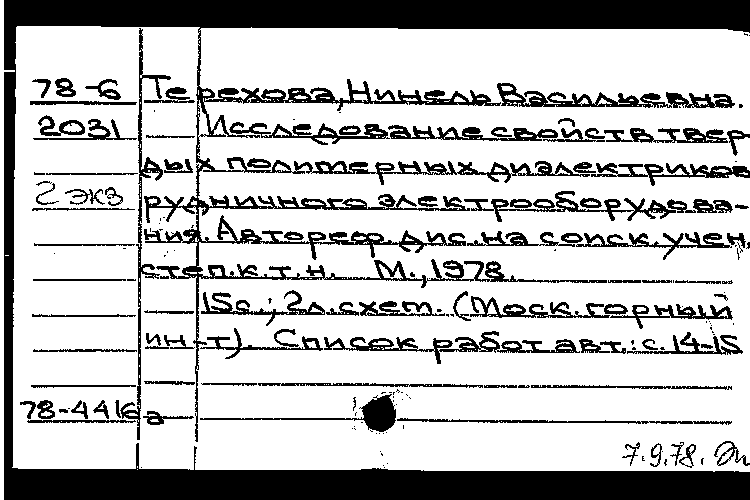 78-6 Терехова, Нинель Васильевна.
2031 Исследование свойств твер
дых полимерных диэлектриков
2 экз рудничного электрооборудова-
ния. Автореф. дис. на соиск. учен.
степ. к.т.н. М., 1978.
15с.; 2л. схем. (Моск. горный
ин-т). Список работ авт.: с. 14-15
78-4416а
7.9.78.